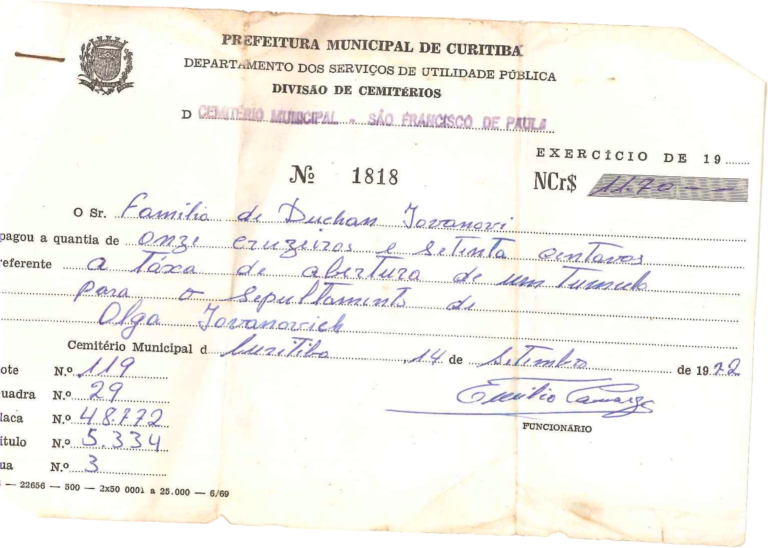 PREFEITURA MUNICIPAL DE CURITIBA
DEPARTAMENTO DOS SERVIÇOS DE UTILIDADE PÚBLICA
DIVISÃO DE CEMITÉRIOS
D CEMITÉRIO MUNICIPAL - SÃO FRANCISCO DE PAULA
EXERCÍCIO DE 19
Nº 1818 NCr$ 11.70
O Sr. Familia de Duchan Jovanovi
pagou a quantia de onze cruzeiros e setenta centavos
referente a táxa de abertura de um tumulo
para o sepultamento de
Olga Jovanovich
Cemitério Municipal d Curitiba, 14 de Setembro de 1972
ote N.º 119
uadra N.º 29
laca N.º 48.772
ítulo N.º 5.334
ua N.º 3
Camargo
FUNCIONÁRIO
— 22656 — 500 — 2x50 0001 a 25.000 — 6/69